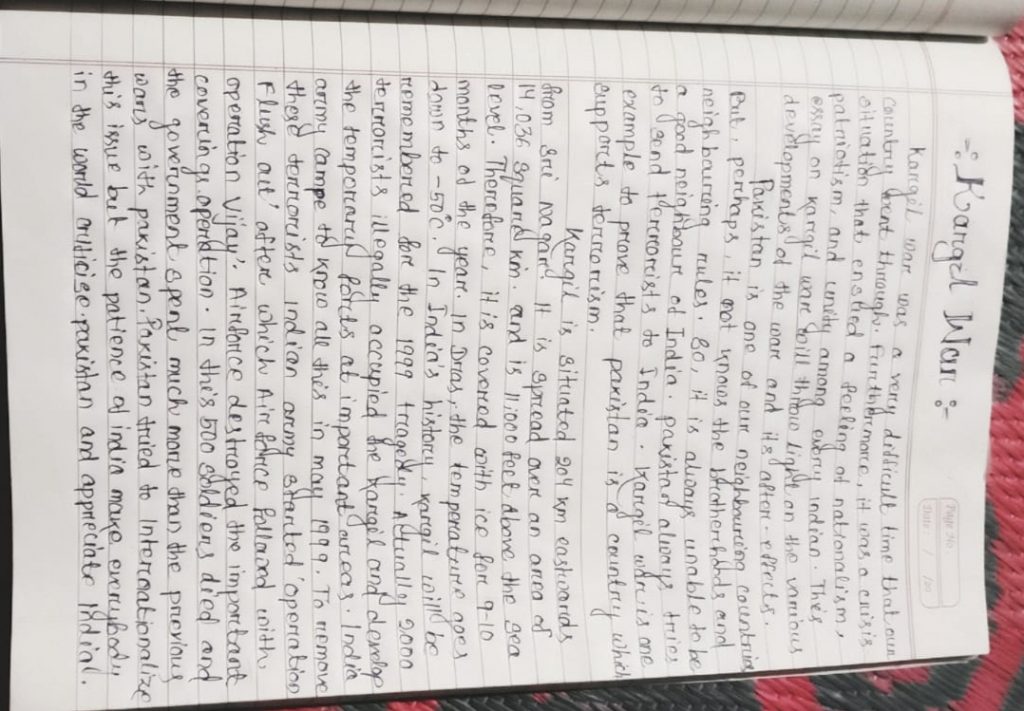 -: Kargil War :-
Page No.
Date: / /20
Kargil war was a very difficult time that our
country went through. Furthermore, it was a crisis
situation that ensured a feeling of nationalism,
patriotism, and unity among every indian. This
essay on Kargil war will throw light on the various
developments of the war and its after-effects.
Pakistan is one of our neighbouring countries
But, perhaps, it not knows the brotherhoods and
neighbouring rules. So, it is always unable to be
a good neighbour of India. pakistan always tries
to send terrorists to India. Kargil war is one
example to prove that pakistan is a country which
supports terrorism.
Kargil is situated 204 km eastwards
from Sri Nagar. It is spread over an area of
14,036 square km. and is 11000 feet above the sea
level. Therefore, it is covered with ice for 9-10
months of the year. In Dras, the temperature goes
down to -50c. In India's history, Kargil will be
remembered for the 1999 tragedy. Actrually 2000
terrorists illegally accupied the Kargil and
the temporary forces at important areas. India
army campe to know all this in may 1999. To remove
these terrorists indian army started 'operation
Flush out' after which Airforce with
operation Vijay'. Airforce destroyed the important
covering operation. in this 500 soldiers died and
the government spent much more than the previous
wars with pakistan. Pakistan tried to Internationalize
this issue but the patience of india make everybody
in the world criticise pakistan and appreciate India.